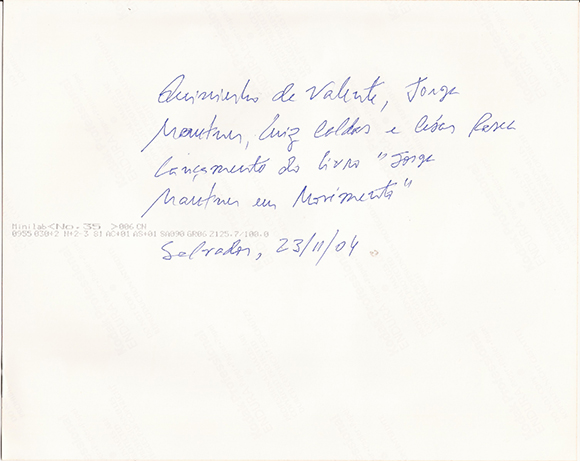 Quininho de Valente, Jorge
Mautner, Luiz Caldas e César Rasec
Lançamento do livro "Jorge
Mautner em Movimento"
Minilab<No. 35 >006 CN
0955 030+2 N+2-3 81 AC+01 AS+01 SA090 GR06 2125.7/100.0
Salvador, 23/11/04